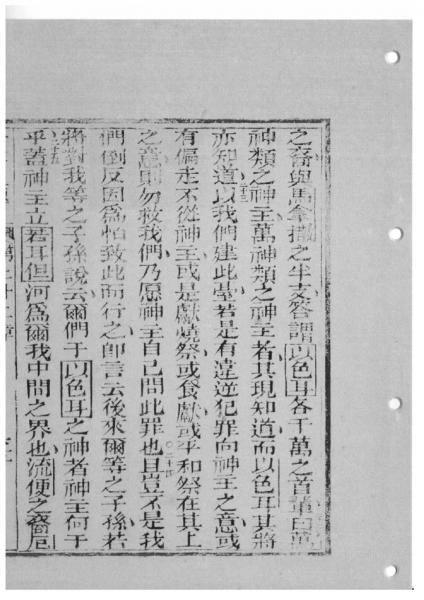 之裔與馬拿撒之半支答謂以色耳各千萬之首軰曰萬
神類之神主萬神類之神主者其現知道而以色耳其將
亦知道以我們建此㙜若是有違逆犯罪向神主之意或
有偏走不從神主或是獻燒祭或食獻或平和祭在其上
之意則勿救我們乃愿神主自己問此罪也且豈不是我
們倒反因為怕致此而行之即言云後來爾等之子孫若
將對我等之子孫說云爾們于以色耳之神者神主何于
乎蓋神主立若耳但河爲爾我中間之界也流便之裔